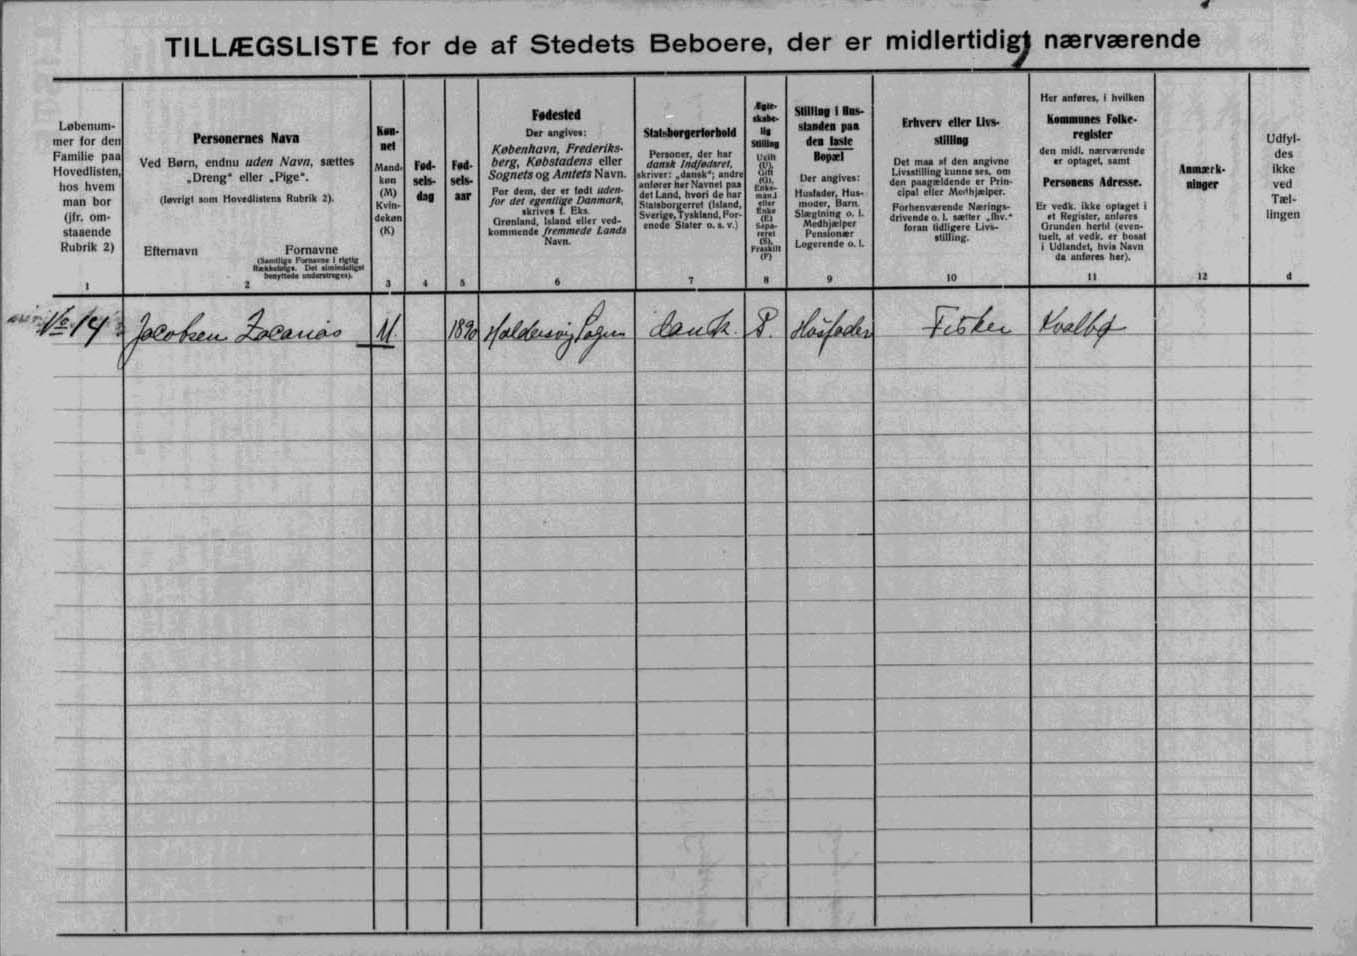 TILLÆGSLISTE for de af Stedets Beboere, der er midlertidigt nærværende
Løbenum-
mer for den
Familie paa
Hovedlisten,
hos hvem
man bor
(jfr. om-
staaende
Rubrik 2)
1
Personernes Navn
Ved Børn, endnu uden Navn, sættes
„Dreng“ eller „Pige“.
(Iøvrigt som Hovedlistens Rubrik 2).
Efternavn
Fornavne
(Samtlige Fornavne i rigtig
Rækkefølge. Det almindeligst
benyttede understreges).
2
Køn-
net
Mand-
køn
(M)
Kvin-
dekøn
(K)
3
Fød-
sels-
dag
4
Fød-
sels-
aar
5
Fødested
Der angives:
København, Frederiks-
berg, Købstadens eller
Sognets og Amtets Navn.
For dem, der er født uden-
for det egentlige Danmark,
skrives f. Eks.
Grønland, Island eller ved-
kommende fremmede Lands
Navn.
6
Statsborgerforhold
Personer, der har
dansk Indfødsret,
skriver: „dansk“; andre
anfører her Navnet paa
det Land, hvori de har
Statsborgerret (Island,
Sverige, Tyskland, For-
enede Stater o. s. v.)
7
Ægte-
skabe-
lig
Stilling
Ugift
(U),
Gift
(G),
Enke-
mand
eller
Enke
(E)
Sepa-
reret
(S),
Fraskilt
(F)
8
Stilling i Hus-
standen paa
den faste
Bopæl
Der angives:
Husfader, Hus-
moder, Barn,
Slægtning o. l.
Medhjælper
Pensionær
Logerende o. l.
9
Erhverv eller Livs-
stilling
Det maa af den angivne
Livsstilling kunne ses, om
den paagældende er Prin-
cipal eller Medhjælper.
Forhenværende Nærings-
drivende o. l. sætter „fhv.“
foran tidligere Livs-
stilling.
10
Her anføres, i hvilken
Kommunes Folke-
register
den midl. nærværende
er optaget, samt
Personens Adresse.
Er vedk. ikke optaget i
et Register, anføres
Grunden hertil (even-
tuelt, at vedk. er bosat
i Udlandet, hvis Navn
da anføres her).
11
Anmærk-
ninger
12
Udfyl-
des
ikke
ved
Tæl-
lingen
d
No 14 Jacobsen Zacarias M. 1890 Haldersvig Sogn dansk. Husfader Fisker Kvalbø